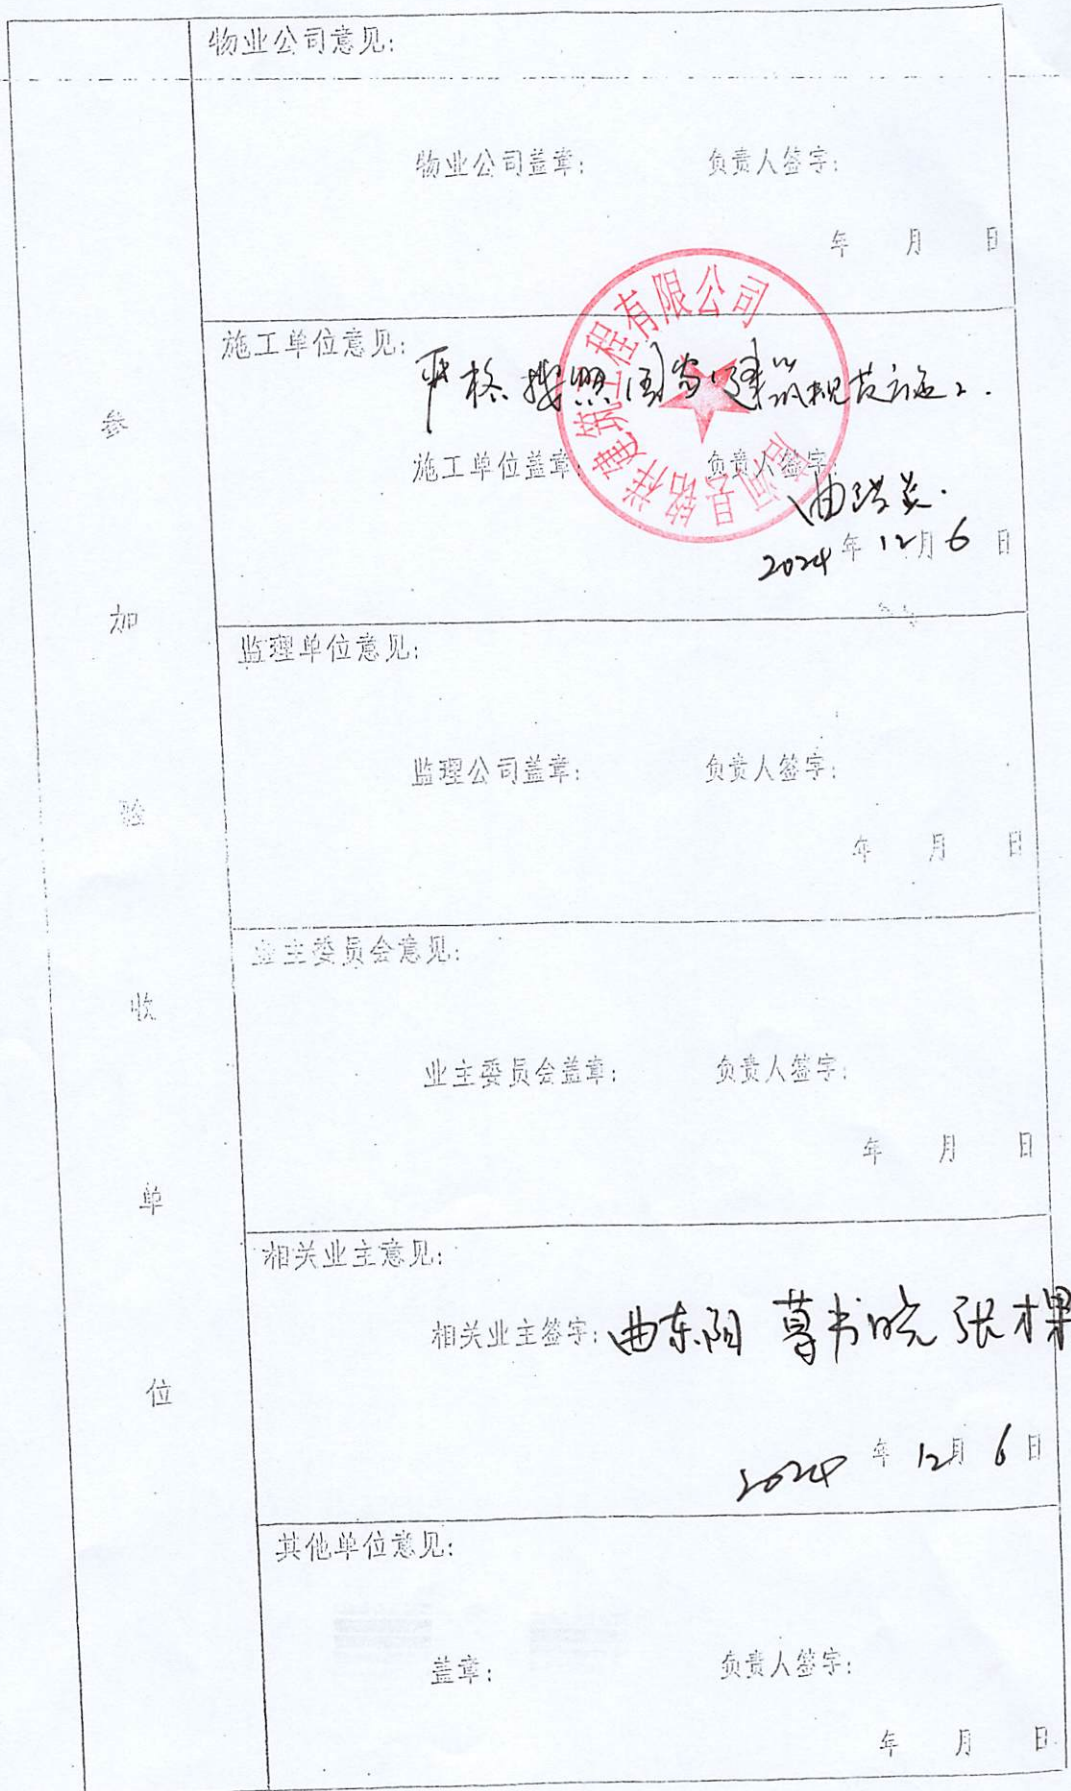 物业公司意见:
物业公司盖章: 负责人签字:
年 月 日
施工单位意见:
严格按照国家建筑规范施工.
施工单位盖章: 负责人签字:
曲洪
2024年12月6日
县铭祥建筑工程有限公司
监理单位意见:
监理公司盖章: 负责人签字:
年 月 日
业主委员会意见:
业主委员会盖章: 负责人签字:
年 月 日
相关业主意见:
相关业主签字: 曲东阳 书晓 张
2024年12月6日
其他单位意见:
盖章: 负责人签字:
年 月 日
参
加
验
收
单
位